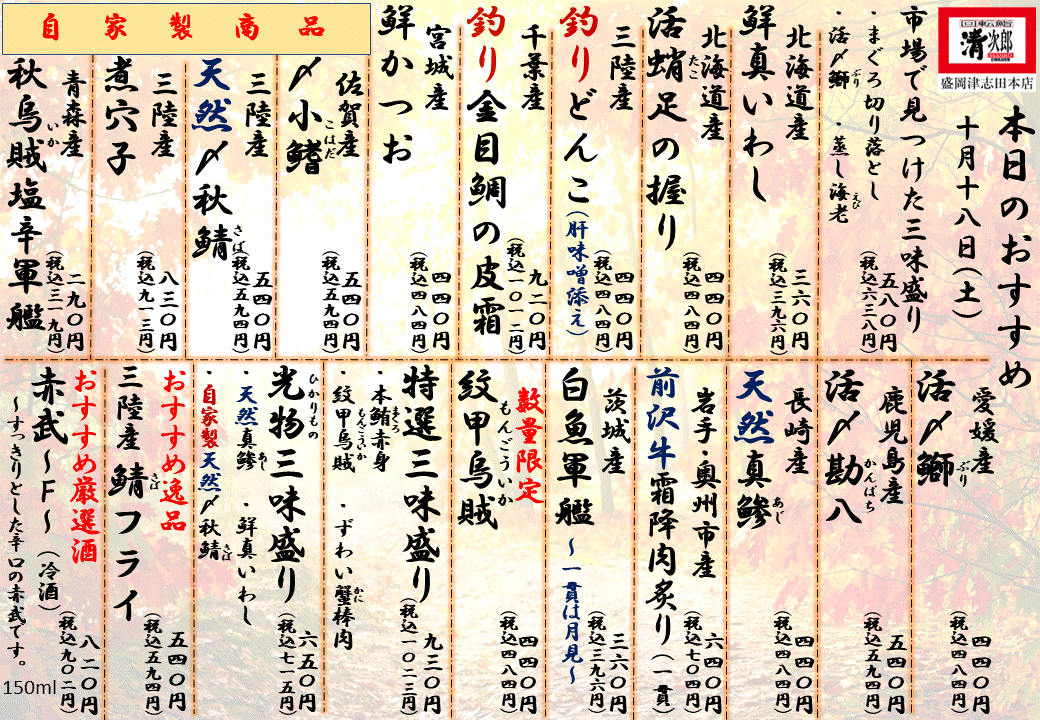 回転鮨
清次郎
盛岡津志田本店
本日のおすすめ
十月十八日(土)
市場で見つけた三味盛り
・まぐろ切り落とし
・活〆鰤 ・蒸し海老
ぶり
えび
五八〇円
(税込六三八円)
北海道産
鮮真いわし
三六〇円
(税込三九六円)
北海道産
活蛸足の握り
たこ
四四〇円
(税込四八四円)
三陸産
釣りどんこ(肝味噌添え)
四四〇円
(税込四八四円)
千葉産
釣り金目鯛の皮霜
九二〇円
(税込一〇一二円)
宮城産
鮮かつお
四四〇円
(税込四八四円)
自家製商品
佐賀産
〆小鰭
こはだ
五四〇円
(税込五九四円)
三陸産
天然〆秋鯖
さば
五四〇円
(税込五九四円)
三陸産
煮穴子
八三〇円
(税込九一三円)
青森産
秋烏賊塩辛軍艦
いか
二九〇円
(税込三一九円)
愛媛産
活〆鰤
ぶり
四四〇円
(税込四八四円)
鹿児島産
活〆勘八
かんぱち
五四〇円
(税込五九四円)
長崎産
天然真鯵
あじ
四四〇円
(税込四八四円)
岩手・奥州市産
前沢牛霜降肉炙り(一貫)
六四〇円
(税込七〇四円)
茨城産
白魚軍艦 ~一貫は月見~
三六〇円
(税込三九六円)
数量限定
紋甲烏賊
もんごういか
四四〇円
(税込四八四円)
特選三味盛り
・本鮪赤身
まぐろ
・紋甲烏賊 ・ずわい蟹棒肉
もんごういか
かに
九三〇円
(税込一〇二三円)
光物三味盛り
ひかりもの
・天然真鯵 ・鮮真いわし
あじ
・自家製天然〆秋鯖
さば
六五〇円
(税込七一五円)
おすすめ逸品
三陸産 鯖フライ
さば
五四〇円
(税込五九四円)
おすすめ厳選酒
赤武~F~(冷酒)
~すっきりとした辛口の赤武です。
八二〇円
(税込九〇二円)
150ml